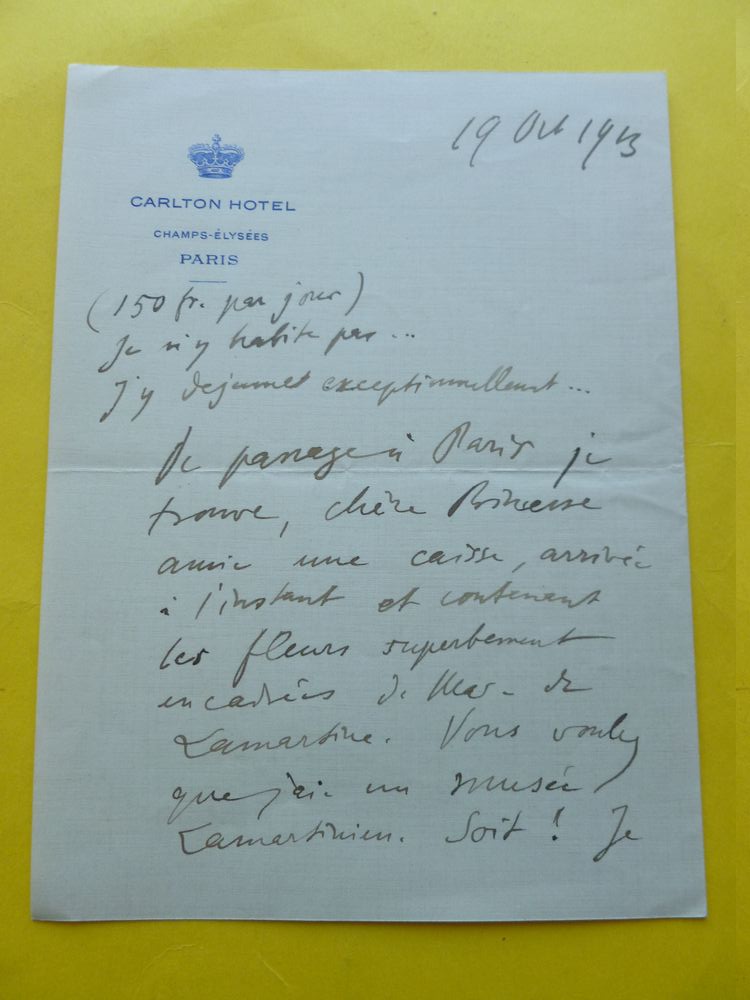 19 Oct 1913
CARLETON HOTEL
CHAMPS-ÉLYSÉES
PARIS
(150 fr. par jour)
Je n'y habite pas...
J'y dejeunes exceptionnellement...
De passage à Paris je
trouve, chère Princesse
amie une caisse, arrivée
à l'instant et contenant
les fleurs superbement
encadrées de Mar. de
Lamartine. Vous voulez
que j'aie un musée
Lamartinien. Soit ! Je